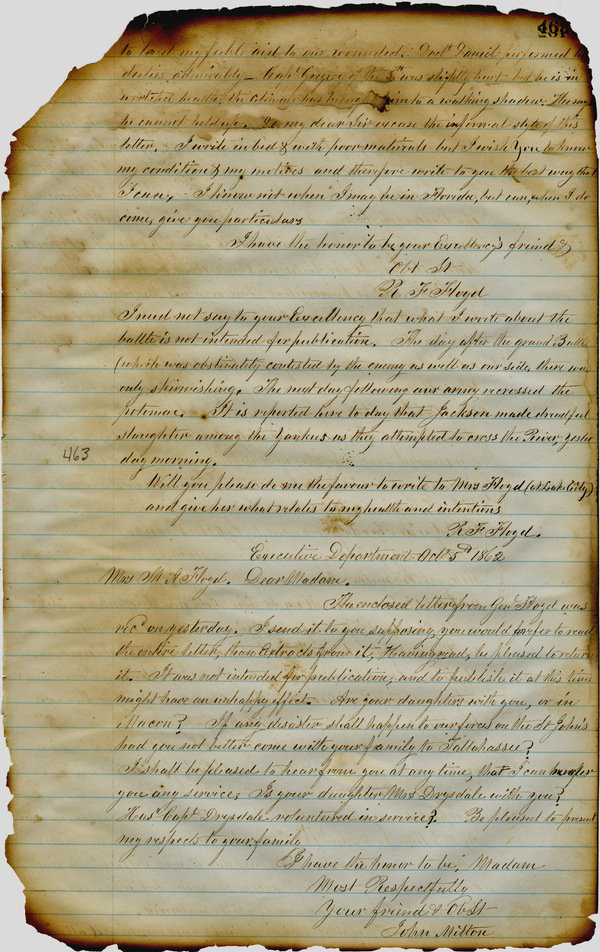 46
to lend my feeble aid to our wounded. Doct. Daniel performed his
duties admirably – Capt Gregory of the 5th was slightly hurt but he is in
wretched health, the climate has him to a walking shadow. He says
he cannot hold up. Do my dear Sir excuse the informal style of this
letter. I write in bed & with poor materials but I wish you to know
my condition & my motives and therefore write to you the best way that
I can. I know not when I may be in Florida, but can, when I do
come, give you particulars
I have the honor to be your Excellency's friend &
Obt St
R. F. Floyd
I need not say to your Excellency that what I write about the
battle is not intended for publication. The day after the grand Battle
(which was obstinately contested by the enemy as well as our side, there was
only skirmishing. The next day following our army recrossed the
potomac. It is reported here to day that Jackson made dreadful
slaughter among the Yankees as they attempted to cross the River yester
day morning.
463
Will you please do me the favour to write to Mrs Floyd (at Lake City)
and give her what relates to my health and intentions
R F Floyd.
Executive Department Octr 5th 1862
Mrs M A Floyd. Dear Madam.
The enclosed letter from Genl Floyd was
recd on yesterday. I send it to you supposing, you would prefer to read
the entire letter, than Extracts from it; Having read, be pleased to return
it. It was not intended for publication, and to publish it at this time
might have an unhappy effect. Are your daughters with you, or in
Macon? If any disaster shall happen to our forces on the St John's
had you not better come with your family to Tallahassee?
I shall be pleased to hear from you at any time, that I can render
you any service; Is your daughter Mrs Drysdale with you?
Has Capt Drysdale volunteered in service? Be pleased to present
my respects to your family
I have the honor to be, Madam
Most Respectfully
Your friend & Ob St
John Milton